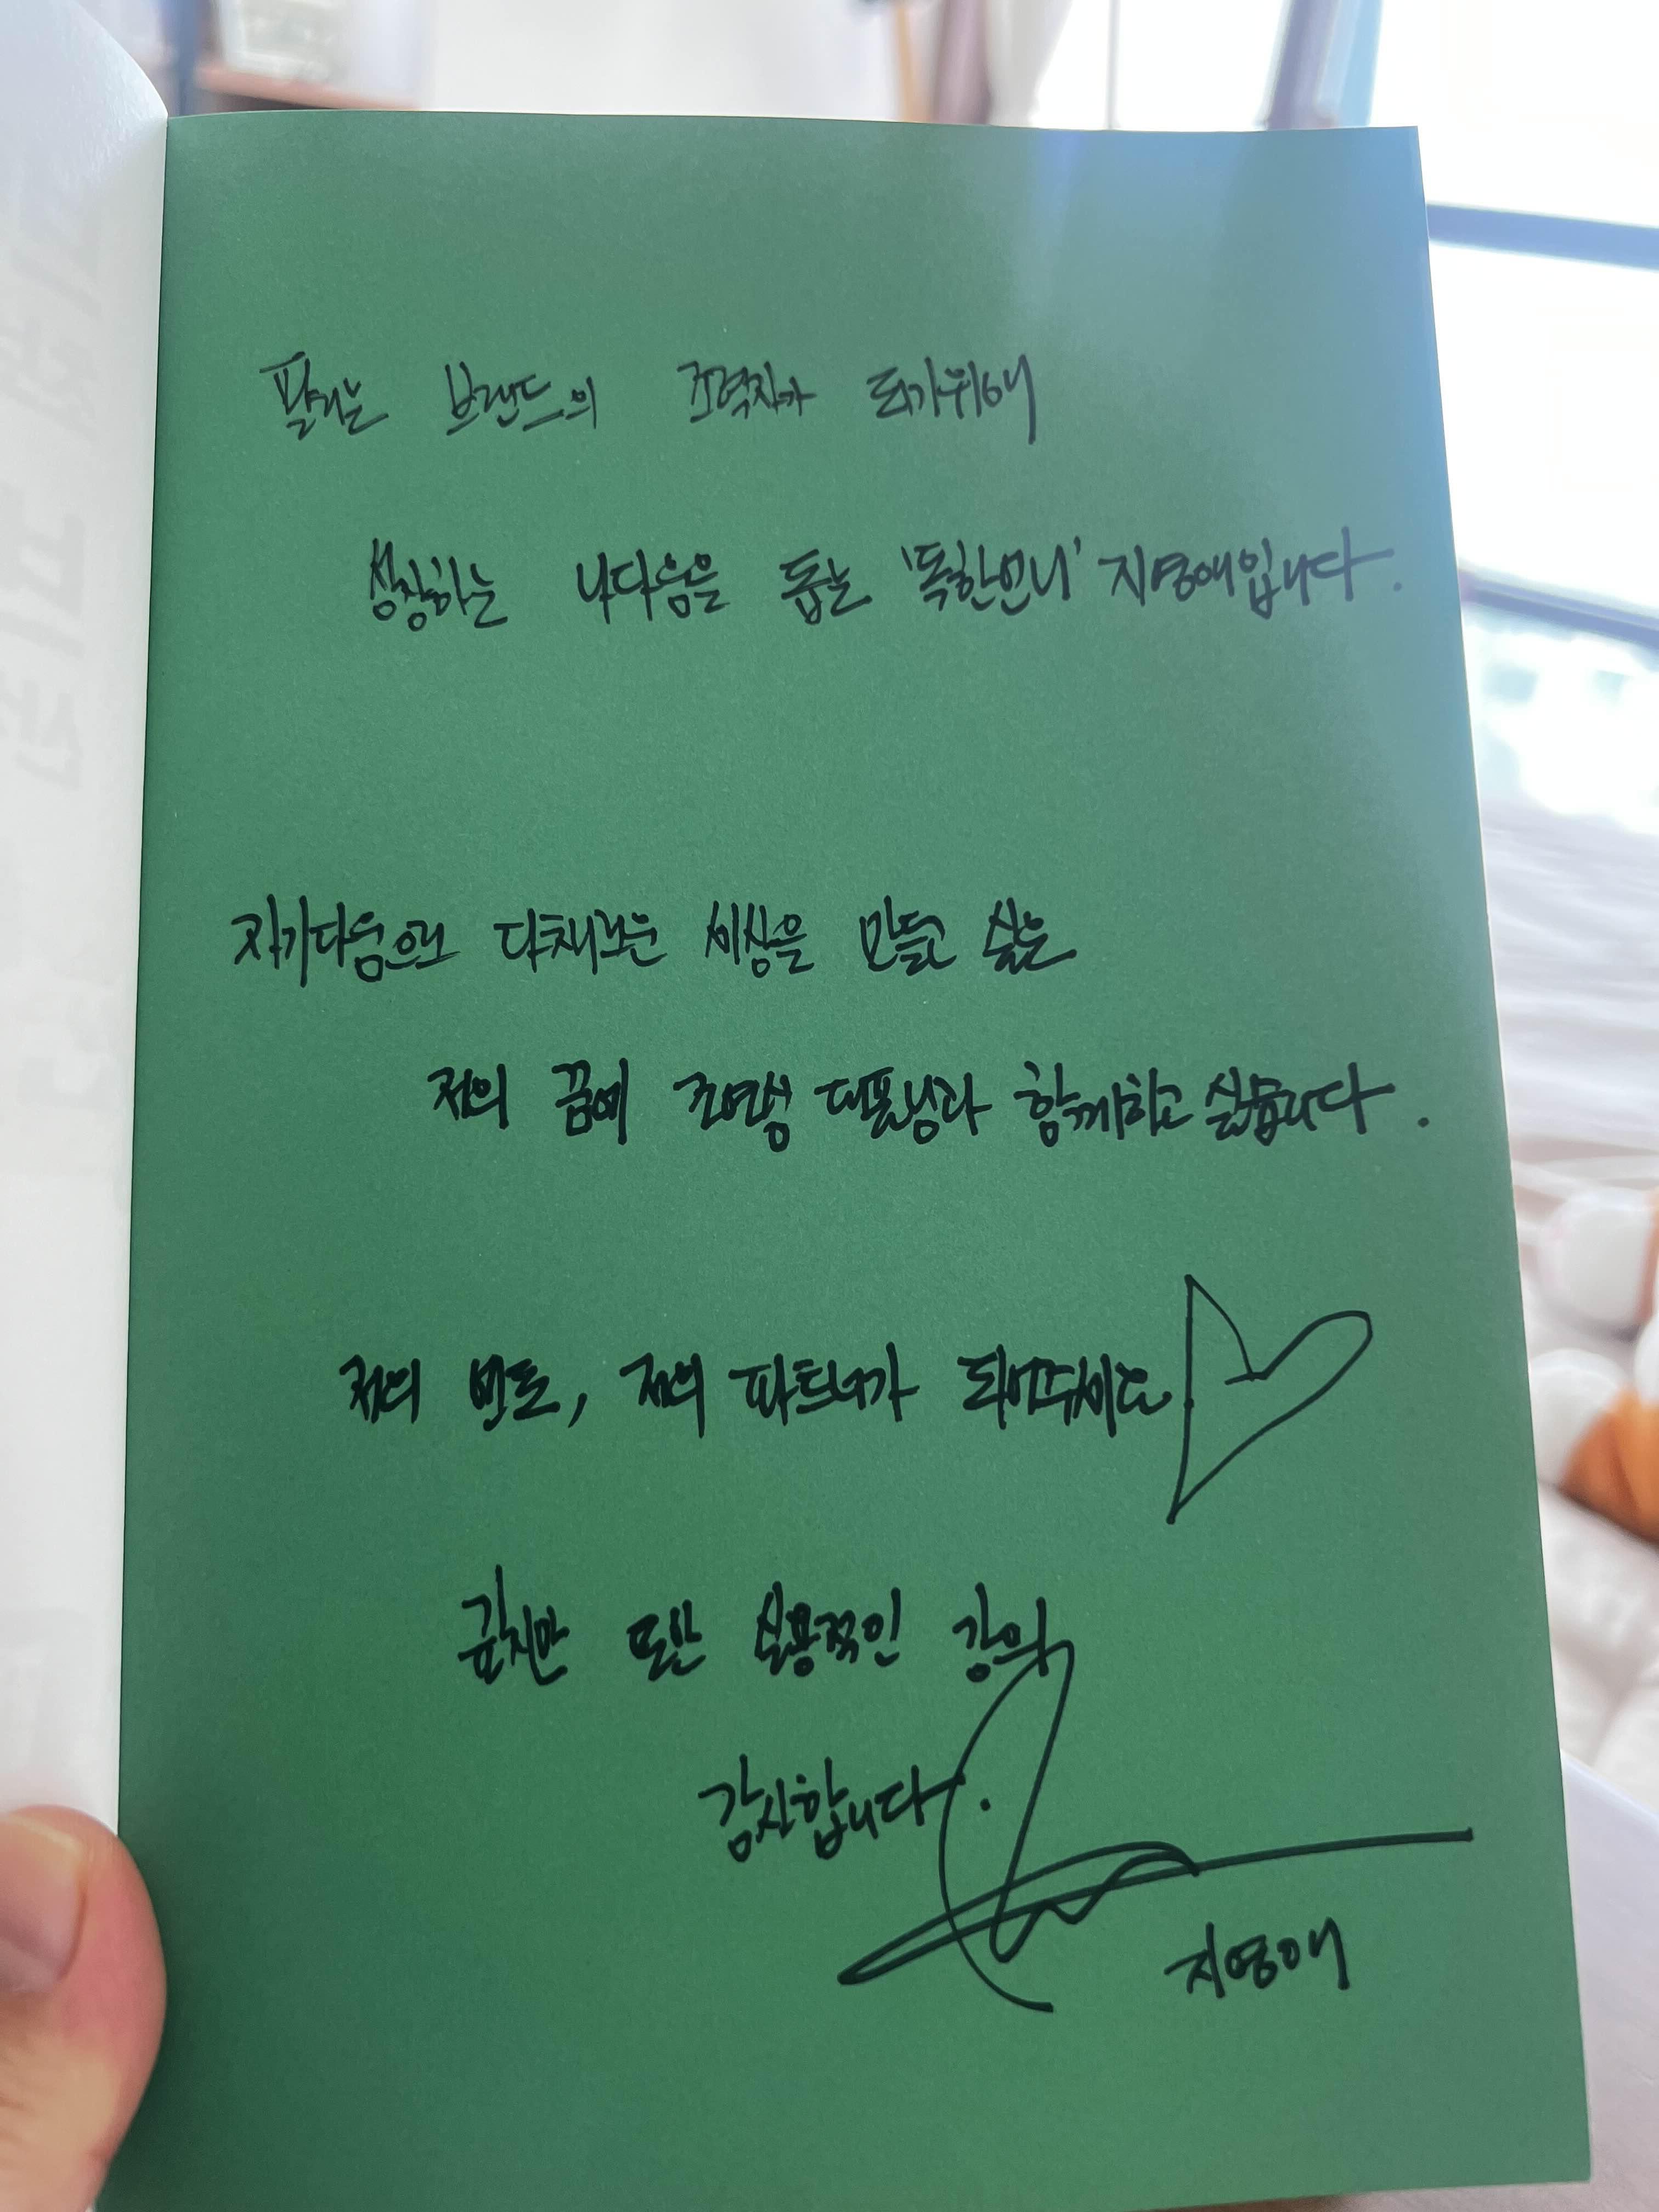 팔리는 브랜드의 조력자가 되기위해
성장하는 나다음을 돕는 '독한언니' 지영애입니다.
자기다움으로 다채로운 세상을 만들고 싶은
저의 꿈에 조연심 대표님과 함께하고 싶습니다.
저의 멘토, 저의 파트너가 되어주세요
깊지만 또한 실용적인 강의
감사합니다.
지영애